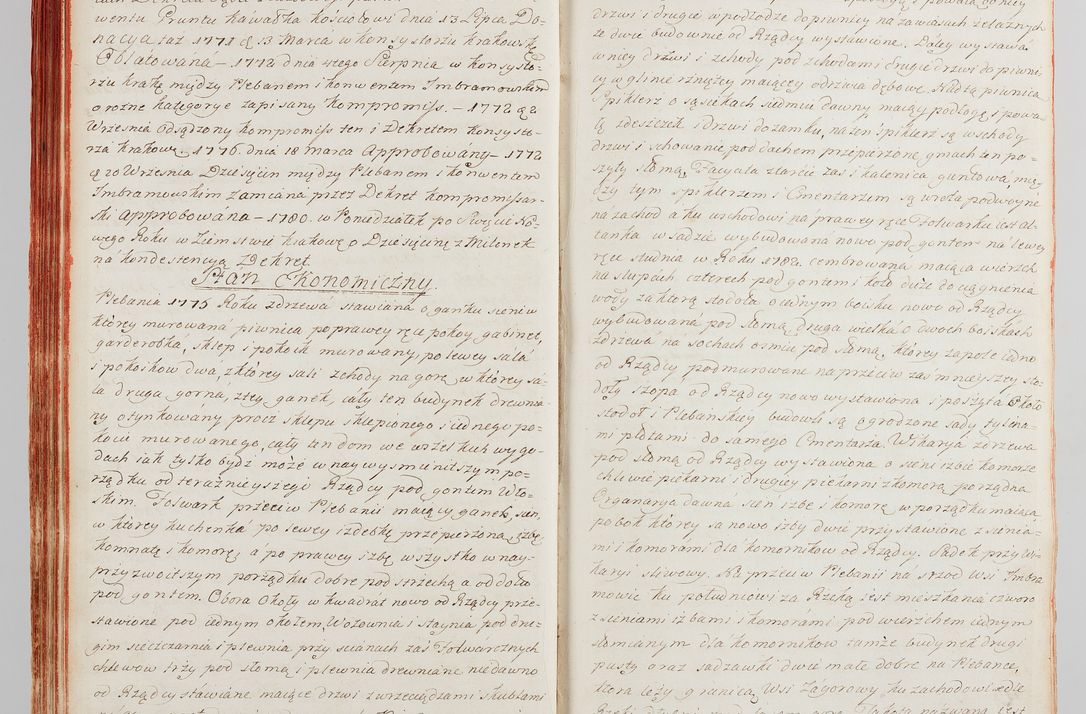 wentu Pruntu kawałka kościołowi dnia 13 Lipca Do-
nacya taż 1771 d 13 Marca w konsystorzu krakowsk.
Oblatowana – 1772 dnia 4tego Sierpnia w konsysto-
rzu krakę między Plebanem i konwentem Imbramowskim
o rożne kategorye zapisany kompromiss. – 1772 d 2
Września Odsądzony kompromiss ten i Dekretem konsysto-
rza krakowę 1776. dnia 18 marca Approbowany – 1772
d 20 Września Dziesięcin między Plebanem i konwentem
Imbramowskim zamiana przez Dekret kompromissar-
ski approbowana – 1780. w Poniedziałek po Święcie No-
wego Roku w Ziemstwie krakowę o Dziesięcinę z Milonek
na kondescencyą Dekret
Stan Ekonomiczny.
Plebania 1775 Roku z drzewa stawiana o ganku sieni w
ktorey murowana piwnica po prawey ręce pokoy, gabinet,
garderobka, sklep i pokoik murowany, po lewey sala
i pokoikow dwa, z ktorey sali schody na gorę w ktorey sa-
la druga gorna, z tey ganek, cały ten budynek drewnia-
ny otynkowany procz sklepu sklepionego i iednego po-
koiu murowanego, cały ten dom we wszelkich wygo-
dach iak tylko bydź może w naywysmienitszym po-
rządku od teraznieyszegi Rządcy pod gontem Wło-
skim. Folwark przeciw Plebanii maiący ganek, sień,
w ktorey kuchenka po lewey izdebkę przepierzoną, izbę
komnatę i komorę, a po prawey izbę wszystko w nay-
przyzwoitszym porządku dobre pod strzechą a od dołu
pod gontem. Obora Okoły w kwadrat nowo od Rządcy prze-
stawione pod iednym okołem, Wozownia i staynia pod dru-
gim sieczkarnia i plewnia przy scianach zaś Folwarcznych
chlewow trzy pod słomą i plewnia drewniane niedawno
od Rządcy stawiane maiące drzwi z wrzeciądzami skublami
drzwi i drugie w podłodze do piwnicy na zawiasach żelaznych
że dwie budownie od Rządcy wystawione. Daley wystawa
w niey drzwi i schody pod schodami drugie drzwi do piwni-
cy w glinie rzniętey maiącey odrzwia dębowe. Nad tą piwnicą
Spiklerz o sąsiekach siedmiu dawny maiący podłogę i powa-
łę z deszczek i drzwi do zamku, na ten spiklerz są wschody
drzwi i schowanie pod dachem przepierzone, gmach ten po-
szyty słomą, Facyata z tarcic zaś i kalenica gontowa, mię-
dzy tym spiklerzem i Cmentarzem są wrota podwoyne
na zachod a ku wschodowi na prawey ręce Folwarku iest al-
tanka w sadzie wybudowana nowo pod gontem na lewey
ręce studnia w Roku 1782. cembrowana maiąca wierzch
na słupach czterech pod gontami i koło duże do ciągnienia
wody za ktorą stodoła o iednym boisku nowo od Rządcy
wybudowana pod słomą, druga wielka o dwoch boiskach
z drzewa na sochach osmiu pod słomą, ktorey zapole iedno
od Rządcy podmurowane na przeciw zaś mnieyszey sto-
doły szopa od Rządcy nowo wystawiona i poszyta Około
stodoł i Plebanskiey budowli są ogrodzone sady tynina-
mi płotami do samego Cmentarza. Wikarya z drzewa
pod słomą od Rządcy wystawiona o sieni izbie komorze
chliwie piekarni i drugiey piekarni z komorą porządna
Organarya dawna sień izbę i komorę w porządku maiąca
pobok ktorey są nowo izby dwie przystawione z sienia-
mi i komorami dla komornikow od Rządcy. Sadek przy Wi-
karyi sliwowy. Na przeciw Plebanii na srzod wsi Imbra-
mowic ku południowi za Rzeką iest mieszkania czworo
z sieniami izbami i komorami pod wierzchem iednym
słomianym dla komornikow tamże budynek drugi
pusty oraz sadzawki dwie małe dobre na Plebance,
ktora leży granicą Wsi Zagorowy ku zachodowi wedle